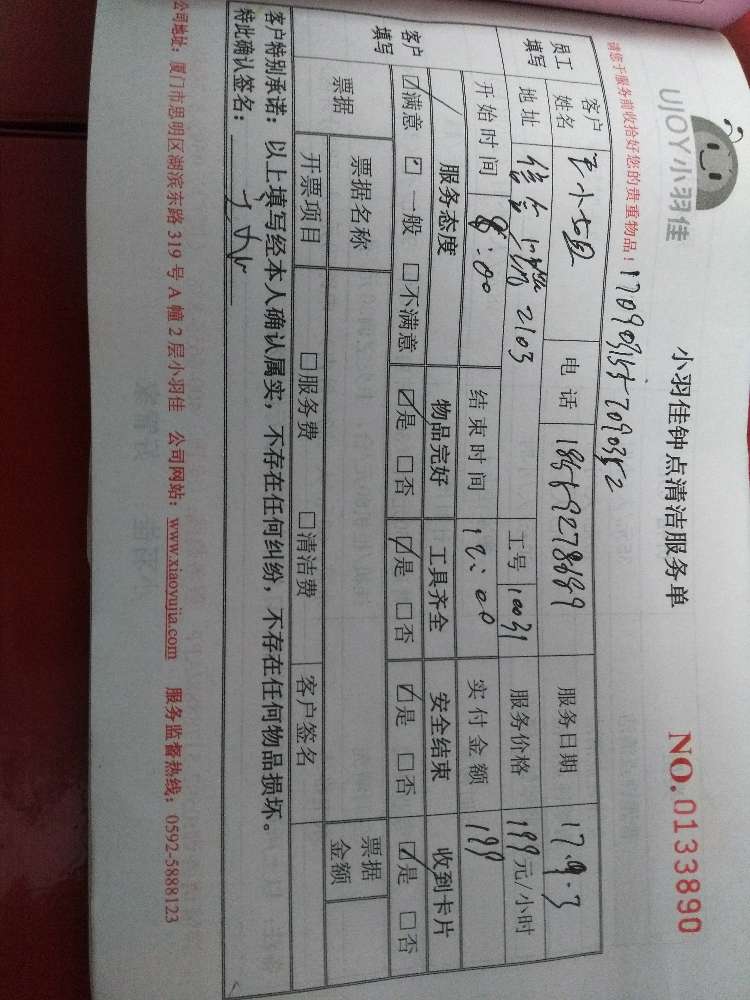 UJOY小羽佳
小羽佳钟点清洁服务单
NO.0133890
请您于服务前收拾好您的贵重物品！
员工填写 客户姓名 电话 服务日期 17.9.3
地址 2103 工号 10031 服务价格 199元/小时
开始时间 8:00 结束时间 12:00 实付金额 199
客户填写 服务态度 物品完好 工具齐全 安全结束 收到卡片
☑满意 □一般 □不满意 ☑是 □否 ☑是 □否 ☑是 □否 ☑是 □否
票据 票据名称 票据金额
开票项目 □服务费 □清洁费 客户签名
客户特别承诺：以上填写经本人确认属实，不存在任何纠纷，不存在任何物品损坏。
特此确认签名：
公司地址：厦门市思明区湖滨东路 319 号 A 幢 2 层小羽佳 公司网站：www.xiaoyujia.com 服务监督热线：0592-5888123